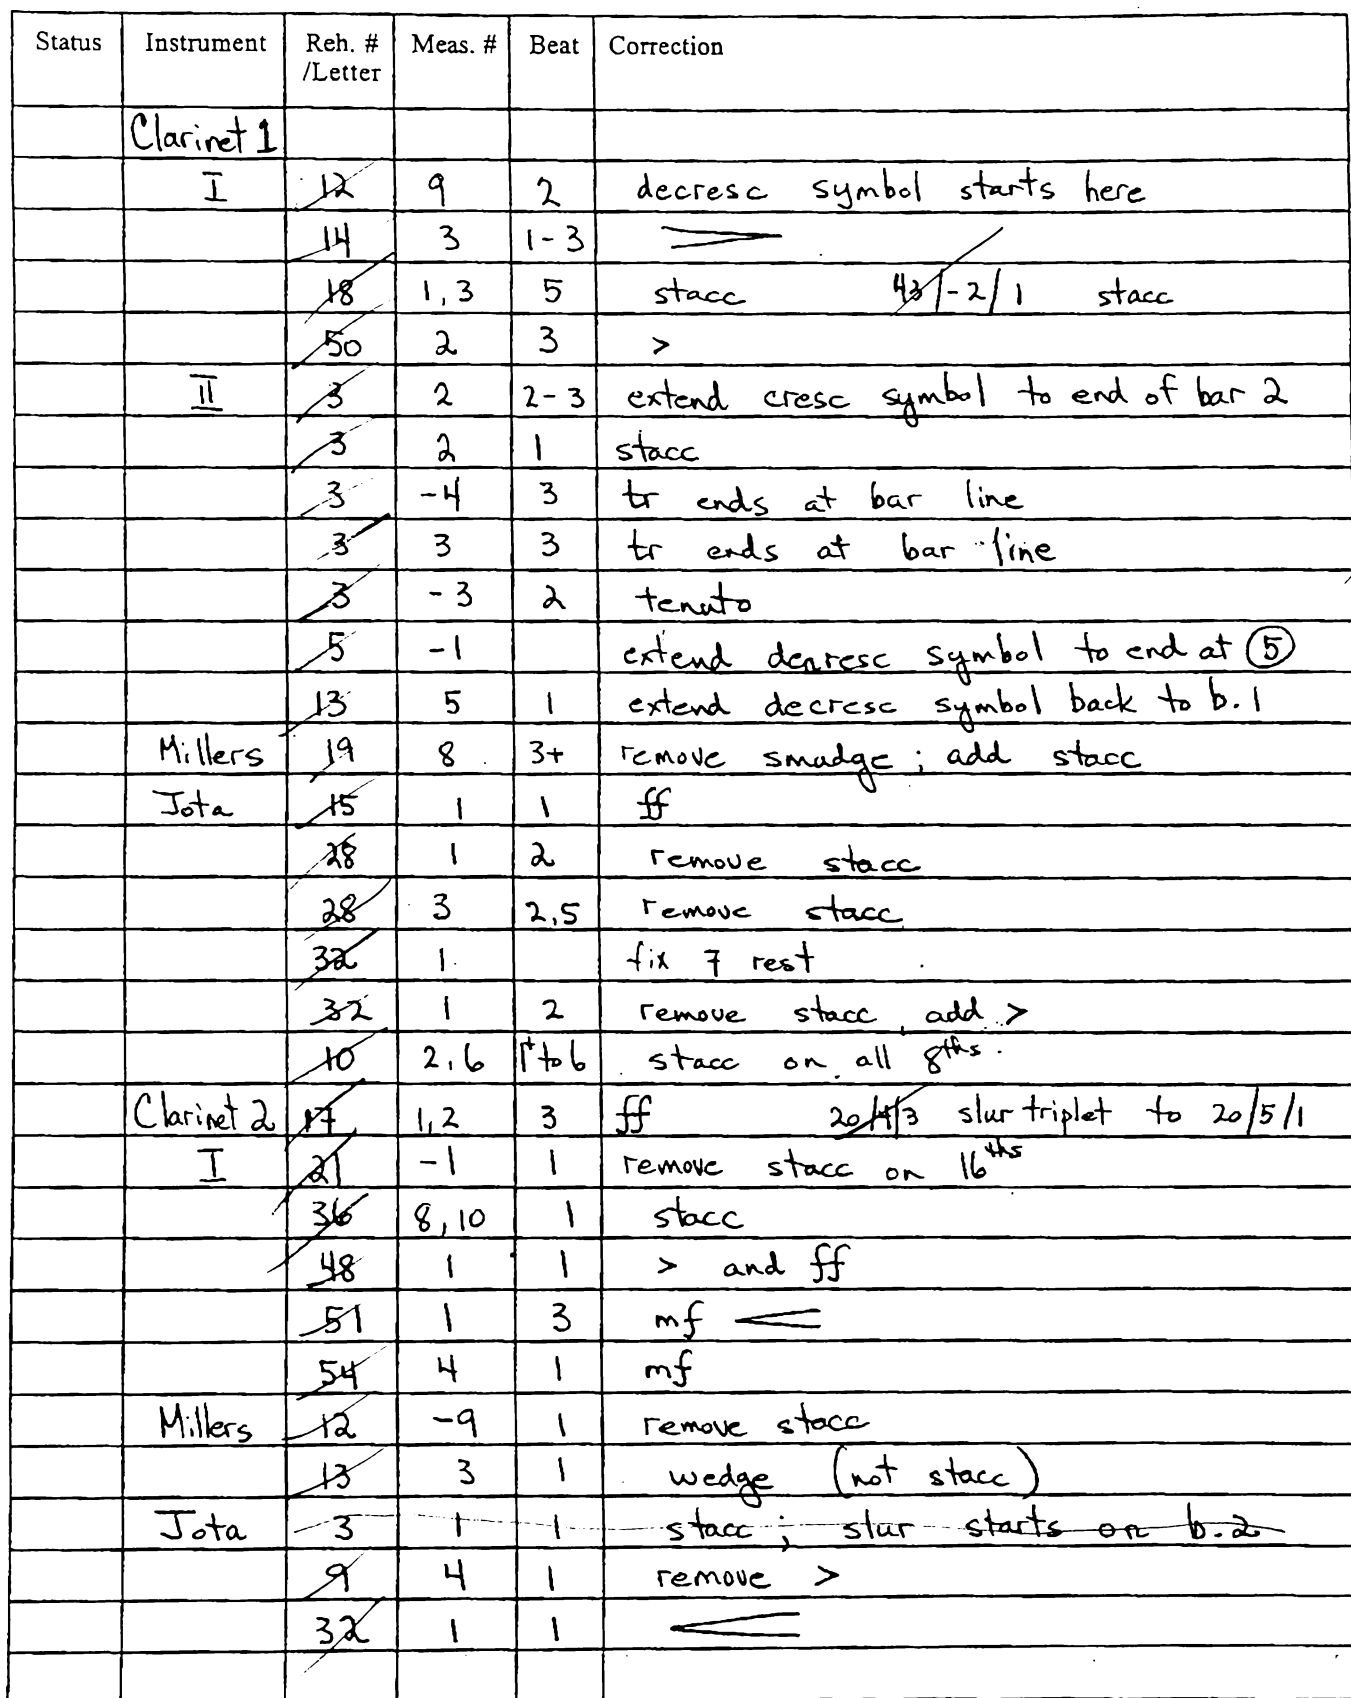 Status Instrument Reh. # /Letter Meas. # Beat Correction
Clarinet 1
I 12 9 2 decresc symbol starts here
14 3 1-3 >
18 1, 3 5 stacc 43/-2/1 stacc
50 2 3 >
II 3 2 2-3 extend cresc symbol to end of bar 2
3 2 1 stacc
3 -4 3 tr ends at bar line
3 3 3 tr ends at bar line
3 -3 2 tenuto
5 -1 extend decresc symbol to end at 5
13 5 1 extend decresc symbol back to b.1
Millers 19 8 3+ remove smudge; add stacc
Jota 15 1 1 ff
28 1 2 remove stacc
28 3 2,5 remove stacc
32 1 fix 7 rest
32 1 2 remove stacc, add >
10 2,6 1+ to 6 stacc on all 8ths.
Clarinet 2 17 1,2 3 ff 20/4/3 slur triplet to 20/5/1
I 21 -1 1 remove stacc on 16ths
36 8, 10 1 stacc
48 1 1 > and ff
51 1 3 mf <
54 4 1 mf
Millers 12 -9 1 remove stacc
13 3 1 wedge (not stacc)
Jota 3 1 1 stacc; slur starts on b.2
9 4 1 remove >
32 1 1 <